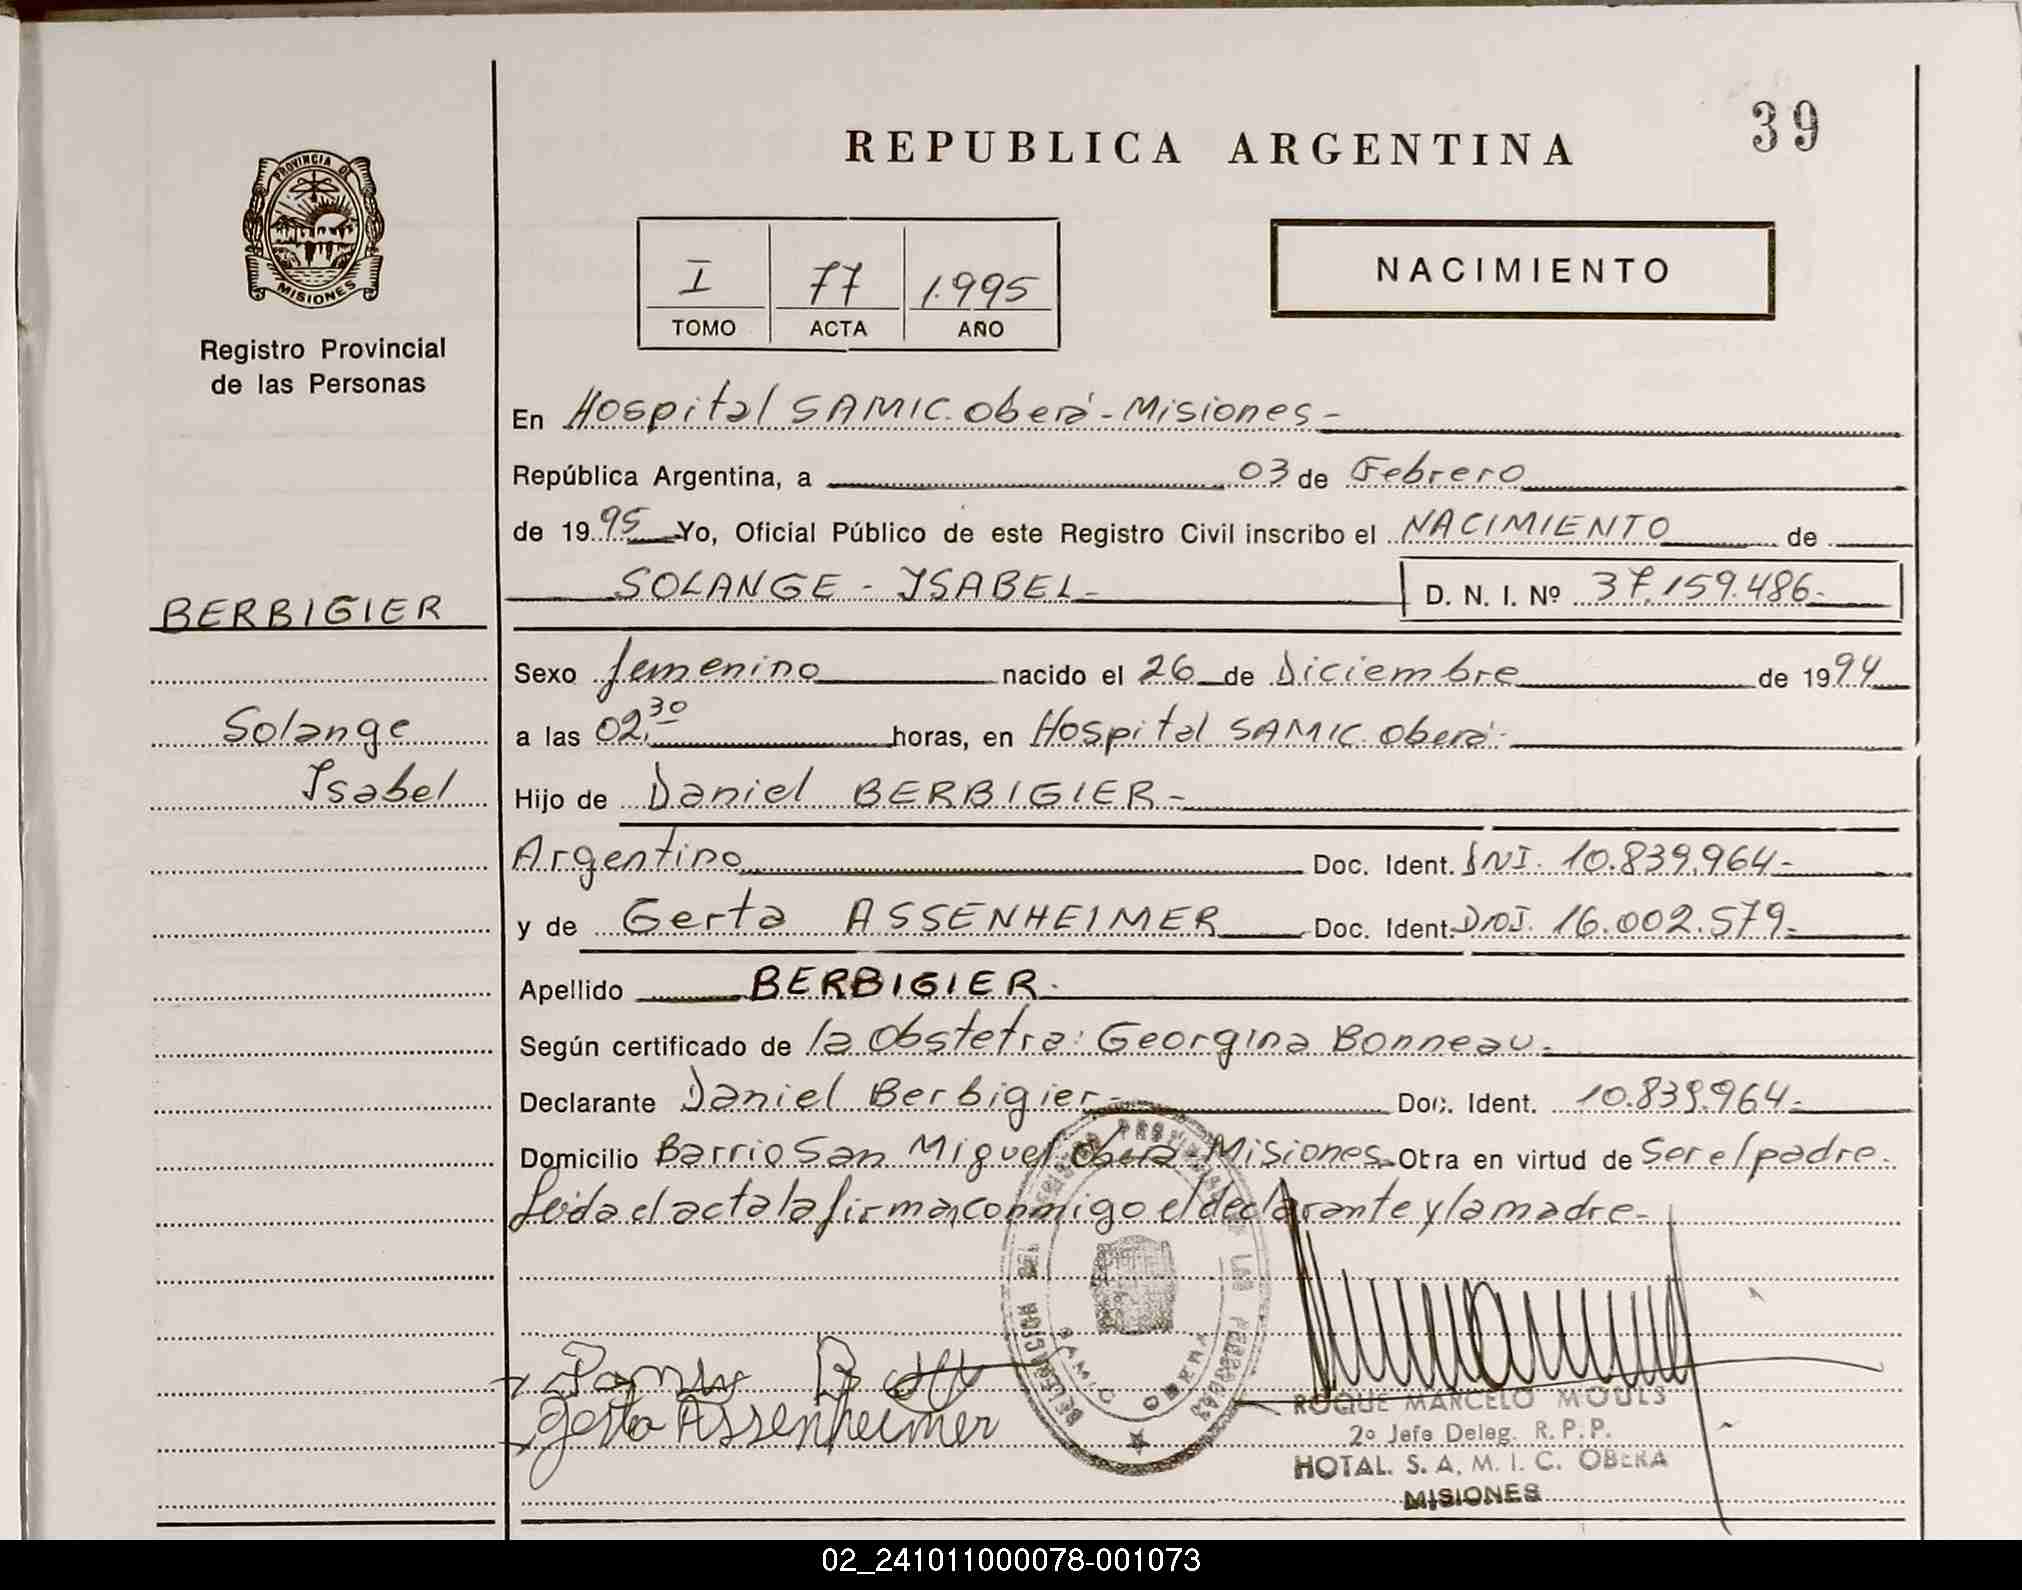 39
REPUBLICA ARGENTINA
PROVINCIA DE
MISIONES
Registro Provincial
de las Personas
I 77 1.995
TOMO ACTA AÑO
NACIMIENTO
En Hospital SAMIC. Oberá - Misiones -
República Argentina, a 03 de Febrero
de 1995 Yo, Oficial Público de este Registro Civil inscribo el NACIMIENTO de
SOLANGE - YSABEL - D. N. I. Nº 37.159.486.-
BERBIGIER
Sexo femenino nacido el 26 de Diciembre de 1994
Solange
a las 02.30 horas, en Hospital SAMIC. Oberá -
Ysabel
Hijo de Daniel BERBIGIER -
Argentino Doc. Ident. DNI. 10.839.964.-
y de Gerta ASSENHEIMER Doc. Ident. DNI. 16.002.579.-
Apellido BERBIGIER.
Según certificado de la Obstetra: Georgina Bonneau.-
Declarante Daniel Berbigier - Doc. Ident. 10.839.964.-
Domicilio Barrio San Miguel Oberá - Misiones - Obra en virtud de Ser el padre.-
Leida el acta la firman conmigo el declarante y la madre -
Gerta Assenheimer
DELEGACION REGISTRO PROVINCIAL DE LAS PERSONAS
SAMIC OBERA
ROQUE MARCELO MOULS
2º Jefe Deleg. R. P. P.
HOTAL. S. A. M. I. C. OBERA
MISIONES
02_241011000078-001073